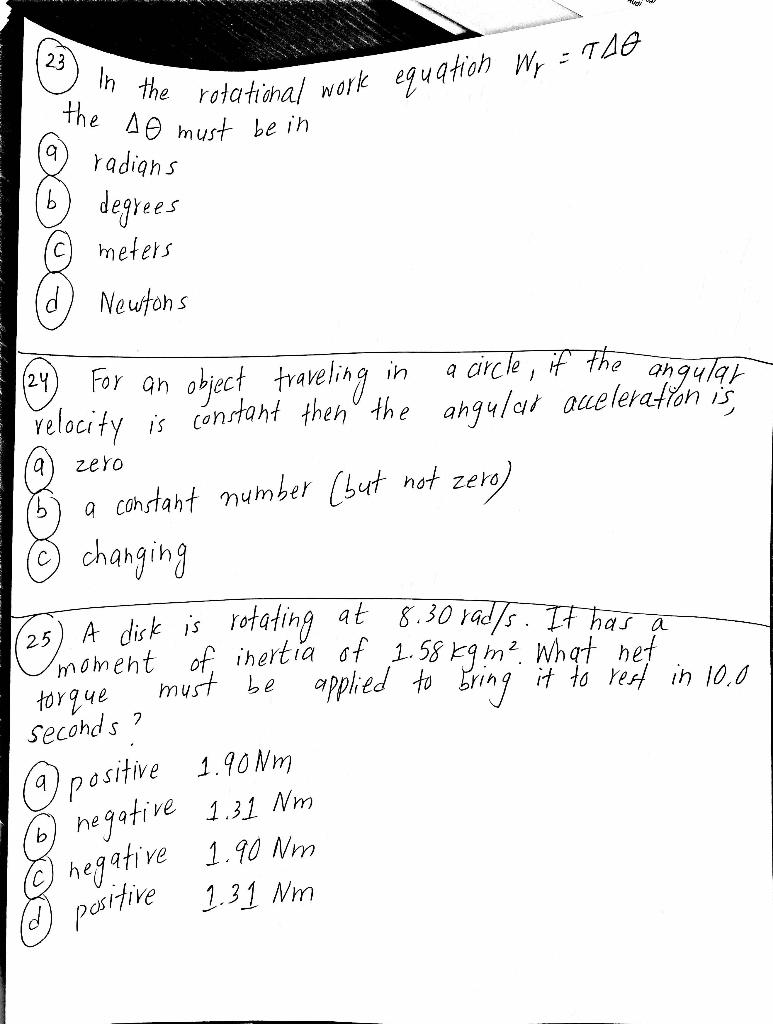 23 In the rotational work equation Wr = τΔθ
the Δθ must be in
a radians
b degrees
c meters
d Newtons
24 For an object traveling in a circle, if the angular
velocity is constant then the angular acceleration is,
a zero
b a constant number (but not zero)
c changing
25 A disk is rotating at 8.30 rad/s. It has a
moment of inertia of 1.58 kg m². What net
torque must be applied to bring it to rest in 10.0
seconds?
a positive 1.90 Nm
b negative 1.31 Nm
c negative 1.90 Nm
d positive 1.31 Nm